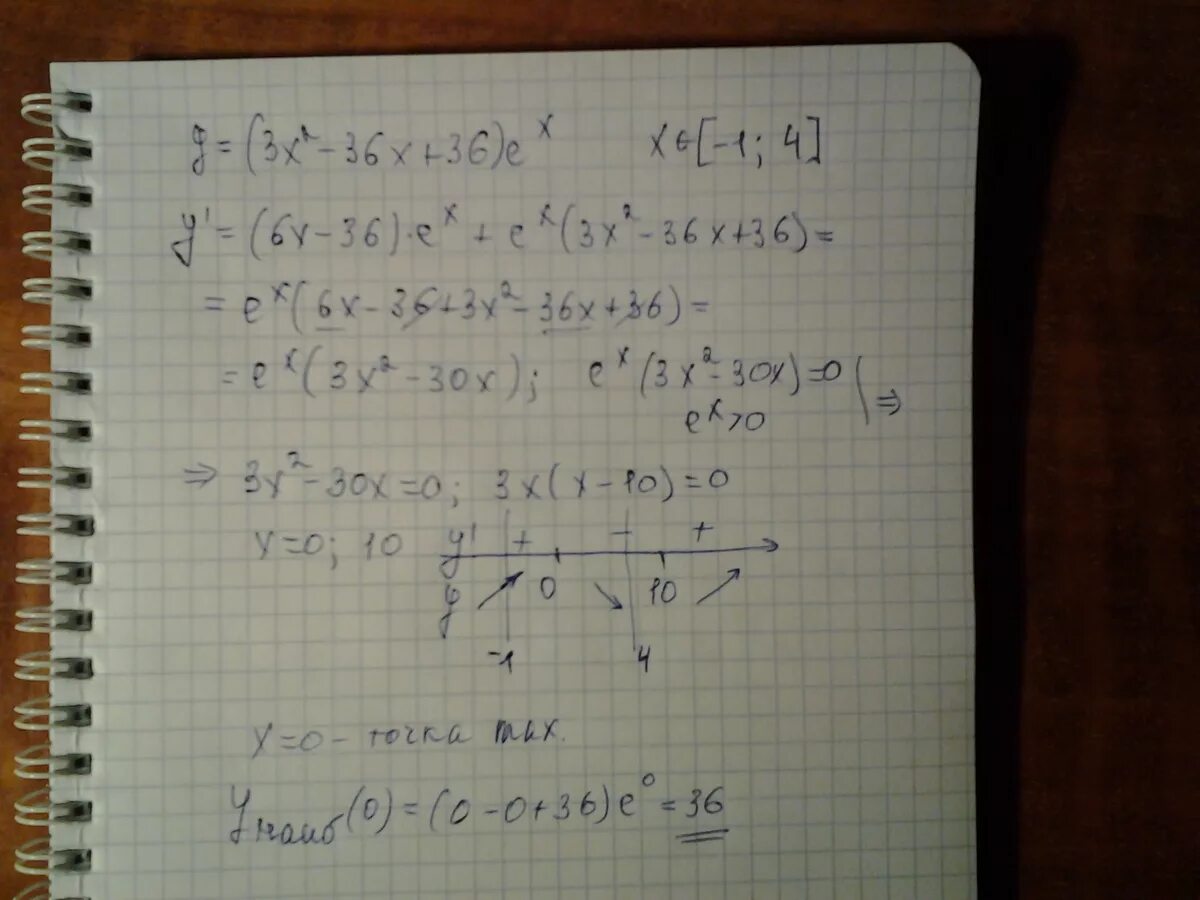 y = (3x² - 36x + 36)eˣ x ∈ [-1; 4]
y' = (6x - 36)·eˣ + eˣ(3x² - 36x + 36) =
= eˣ(6x - 36 + 3x² - 36x + 36) =
= eˣ(3x² - 30x); eˣ(3x² - 30x) = 0 | ⇒
eˣ > 0
⇒ 3x² - 30x = 0; 3x(x - 10) = 0
x = 0; 10 y' + − +
y ↗ 0 ↘ 10 ↗
-1 4
x = 0 - точка max.
y наиб (0) = (0 - 0 + 36)e⁰ = 36